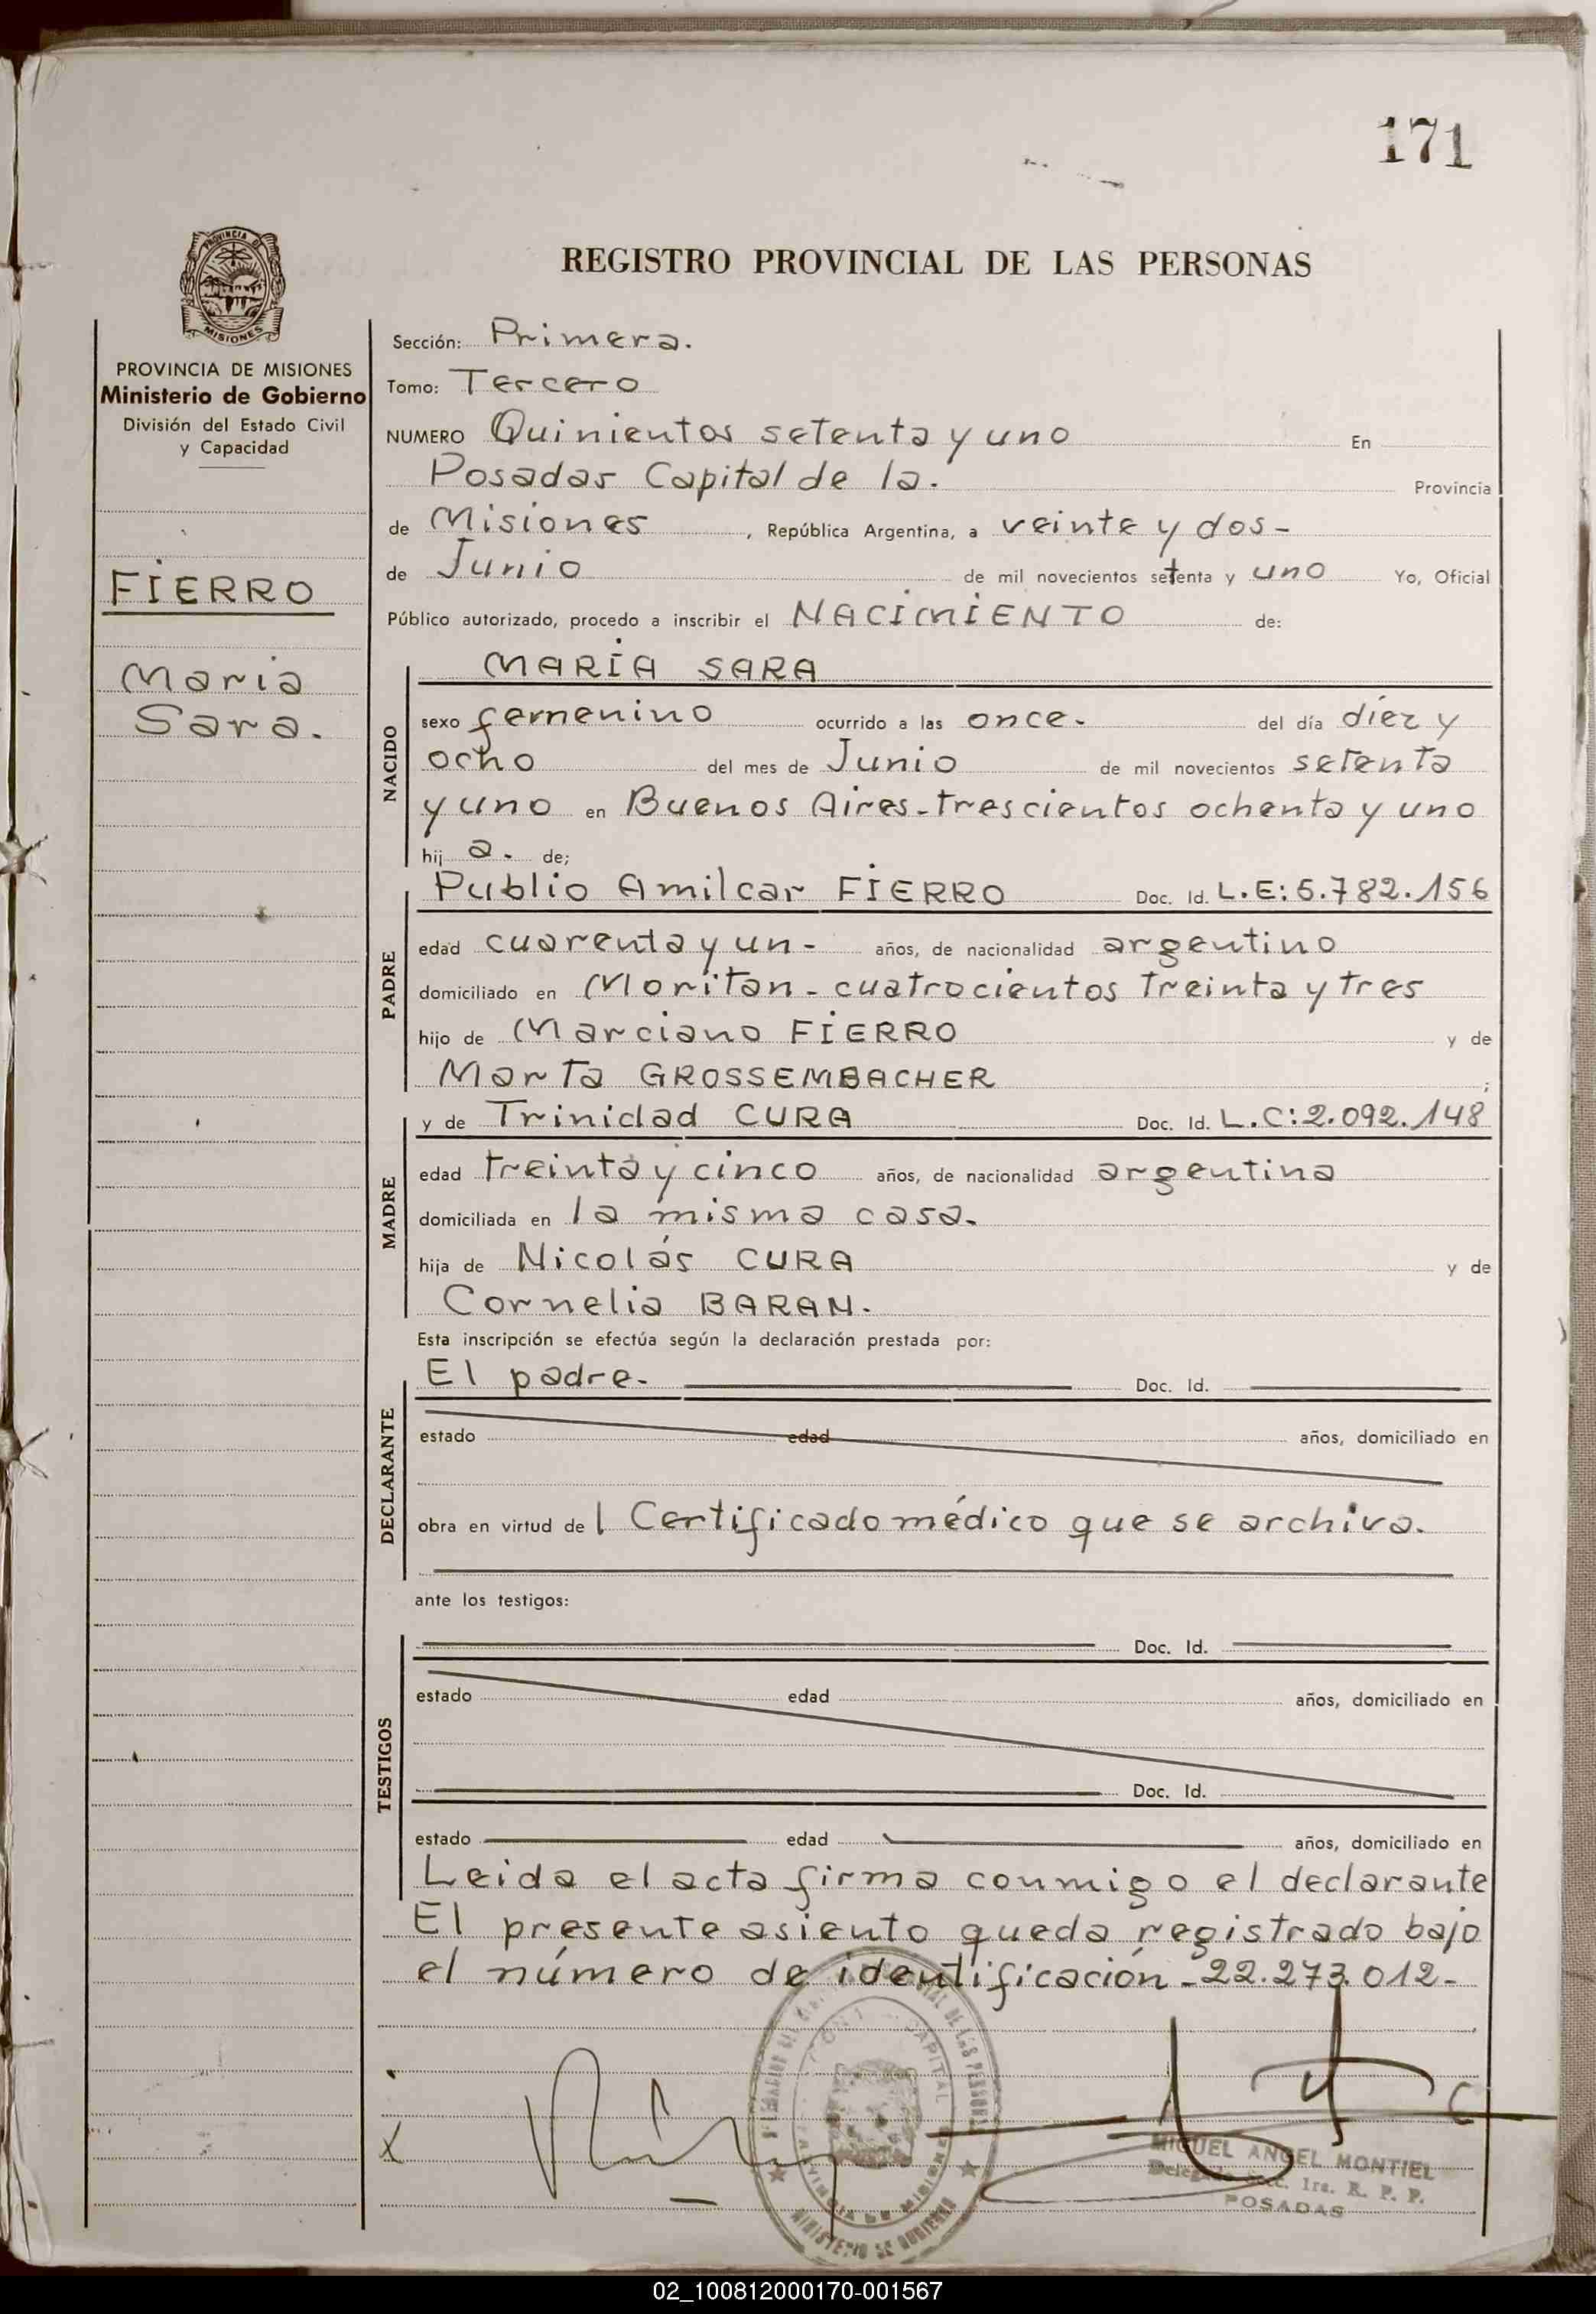 171
PROVINCIA DE
MISIONES
PROVINCIA DE MISIONES
Ministerio de Gobierno
División del Estado Civil
y Capacidad
FIERRO
Maria
Sara.
REGISTRO PROVINCIAL DE LAS PERSONAS
Sección: Primera.
Tomo: Tercero
NUMERO Quinientos setenta y uno En
Posadas Capital de la. Provincia
de Misiones, República Argentina, a veinte y dos-
de Junio de mil novecientos setenta y uno Yo, Oficial
Público autorizado, procedo a inscribir el NACIMIENTO de:
NACIDO
MARIA SARA
sexo femenino ocurrido a las once. del día diez y
ocho del mes de Junio de mil novecientos setenta
y uno en Buenos Aires-trescientos ochenta y uno
hij a. de;
PADRE
Publio Amilcar FIERRO Doc. Id. L.E: 5.782.156
edad cuarenta y un- años, de nacionalidad argentino
domiciliado en Moritan-cuatrocientos treinta y tres
hijo de Marciano FIERRO y de
Marta GROSSEMBACHER ;
MADRE
y de Trinidad CURA Doc. Id. L.C: 2.092.148
edad treinta y cinco años, de nacionalidad argentina
domiciliada en la misma casa.
hija de Nicolás CURA y de
Cornelia BARAN.
Esta inscripción se efectúa según la declaración prestada por:
DECLARANTE
El padre. Doc. Id.
estado edad años, domiciliado en
obra en virtud de l Certificado médico que se archiva.
ante los testigos:
TESTIGOS
Doc. Id.
estado edad años, domiciliado en
Doc. Id.
estado edad años, domiciliado en
Leida el acta firma conmigo el declarante
El presente asiento queda registrado bajo
el número de identificación-22.273.012-
x
MINISTERIO DE GOBIERNO
MIGUEL ANGEL MONTIEL
Delegado Secc. 1ra. R. P. P.
POSADAS
02_100812000170-001567